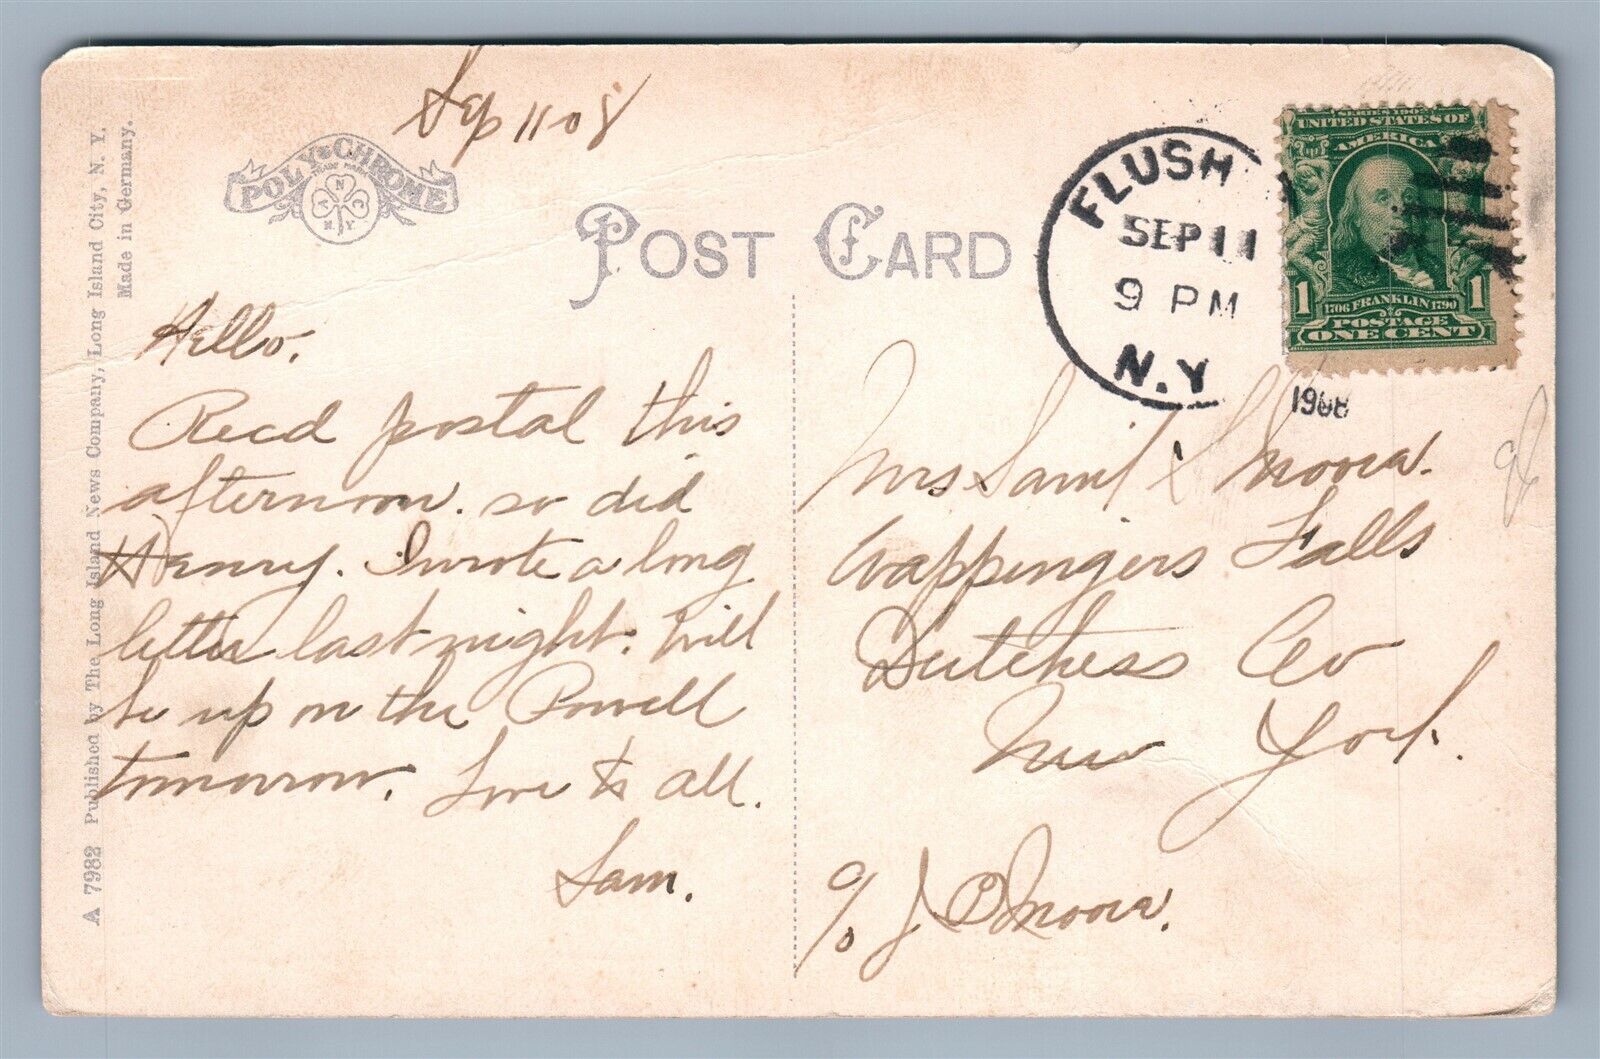 Sep 11 08
POLY-CHROME
POST CARD
A 7982 Published by The Long Island News Company, Long Island City, N. Y.
Made in Germany.
Hello.
Recd postal this
afternoon. so did
Henry. I wrote a long
letter last night. Will
be up on the Powell
tomorrow. Love to all.
Sam.
FLUSH
SEP 11
9 PM
N.Y
1908
SERIES 1902
UNITED STATES OF
AMERICA
1706 FRANKLIN 1790
1 1
POSTAGE
ONE CENT
Mrs Saml
Wappingers Falls
Dutchess Co
New York.
c/o J